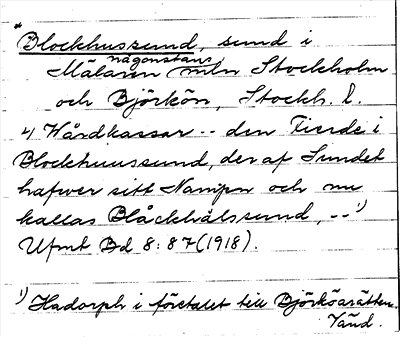 *
Blockhussund, sund i
någonstans
Mälaren mln Stockholm
och Björkön, Stockh. l.
4) Wårdkassar -- den Fierde i
Blockhuussund, der af Sundet
hafwer sitt Nampn och nu
kallas Blåckhålssund, --¹)
Ufmt Bd 8: 87 (1918).
¹) Hadorph i företalet till Björköarätten.
Tänd.